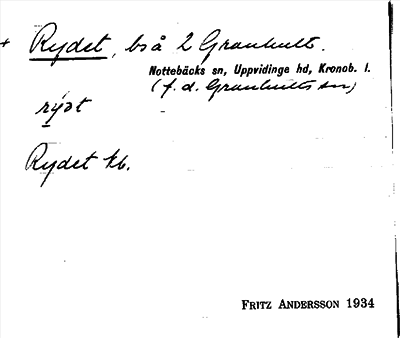 + Rydet, bså 2 Granhult.
Nottebäcks sn, Uppvidinge hd, Kronob. l.
(f. d. Granhults sn)
rýdt
Rydet kb.
FRITZ ANDERSSON 1934